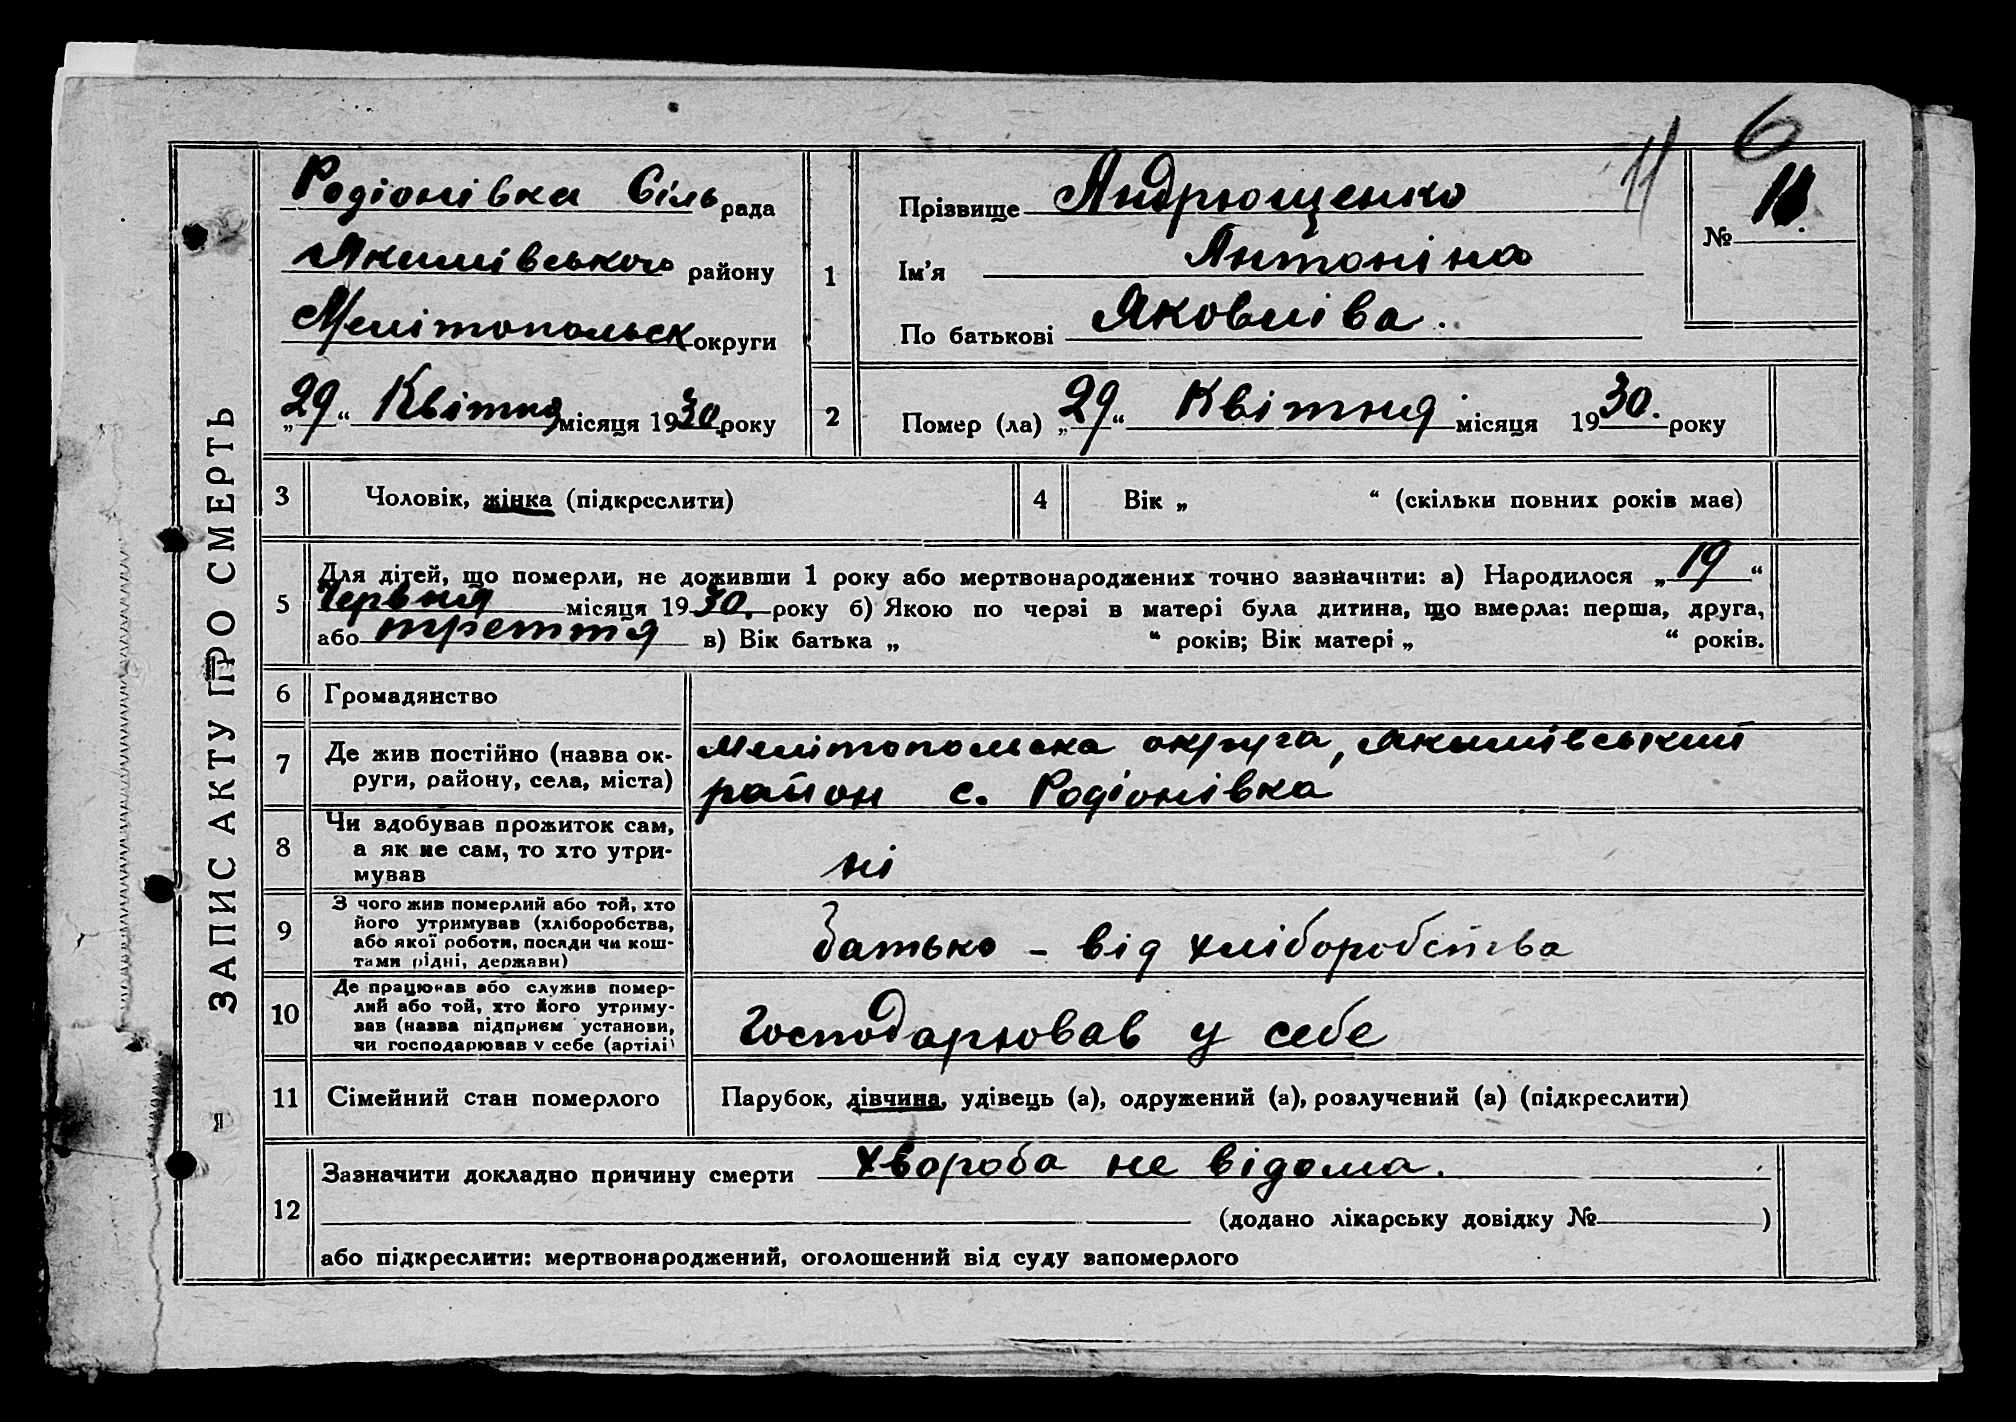 6
11
ЗАПИС АКТУ ПРО СМЕРТЬ
Родіонівка Сіль рада
Якимівського району
Мелітопольск округи
„29“ Квітня місяця 1930 року
1
Прізвище Андрющенко
Ім’я Антоніна
По батькові Яковліва.
№ 11
2 Помер (ла) „29“ Квітня місяця 1930. року
3 Чоловік, жінка (підкреслити)
4 Вік „ “ (скільки повних років має)
5 Для дітей, що померли, не доживши 1 року або мертвонароджених точно зазначити: а) Народилося „19“
Червня місяця 1930. року б) Якою по черзі в матері була дитина, що вмерла: перша, друга,
або треття в) Вік батька „ “ років; Вік матері „ “ років.
6 Громадянство
7 Де жив постійно (назва ок-
руги, району, села, міста)
Мелітопольска округа, Якимівський
район с. Родіонівка
8 Чи здобував прожиток сам,
а як не сам, то хто утри-
мував
ні
9 З чого жив померлий або той, хто
його утримував (хліборобства,
або якої роботи, посади чи кош-
тами рідні, держави)
Батько - від хліборобства
10 Де працював або служив помер-
лий або той, хто його утриму-
вав (назва підприєм установи,
чи господарював у себе (артілі)
Господарював у себе
11 Сімейний стан померлого
Парубок, дівчина, удівець (а), одружений (а), розлучений (а) (підкреслити)
12 Зазначити докладно причину смерти Хвороба не відома.
(додано лікарську довідку № )
або підкреслити: мертвонароджений, оголошений від суду запомерлого
Я